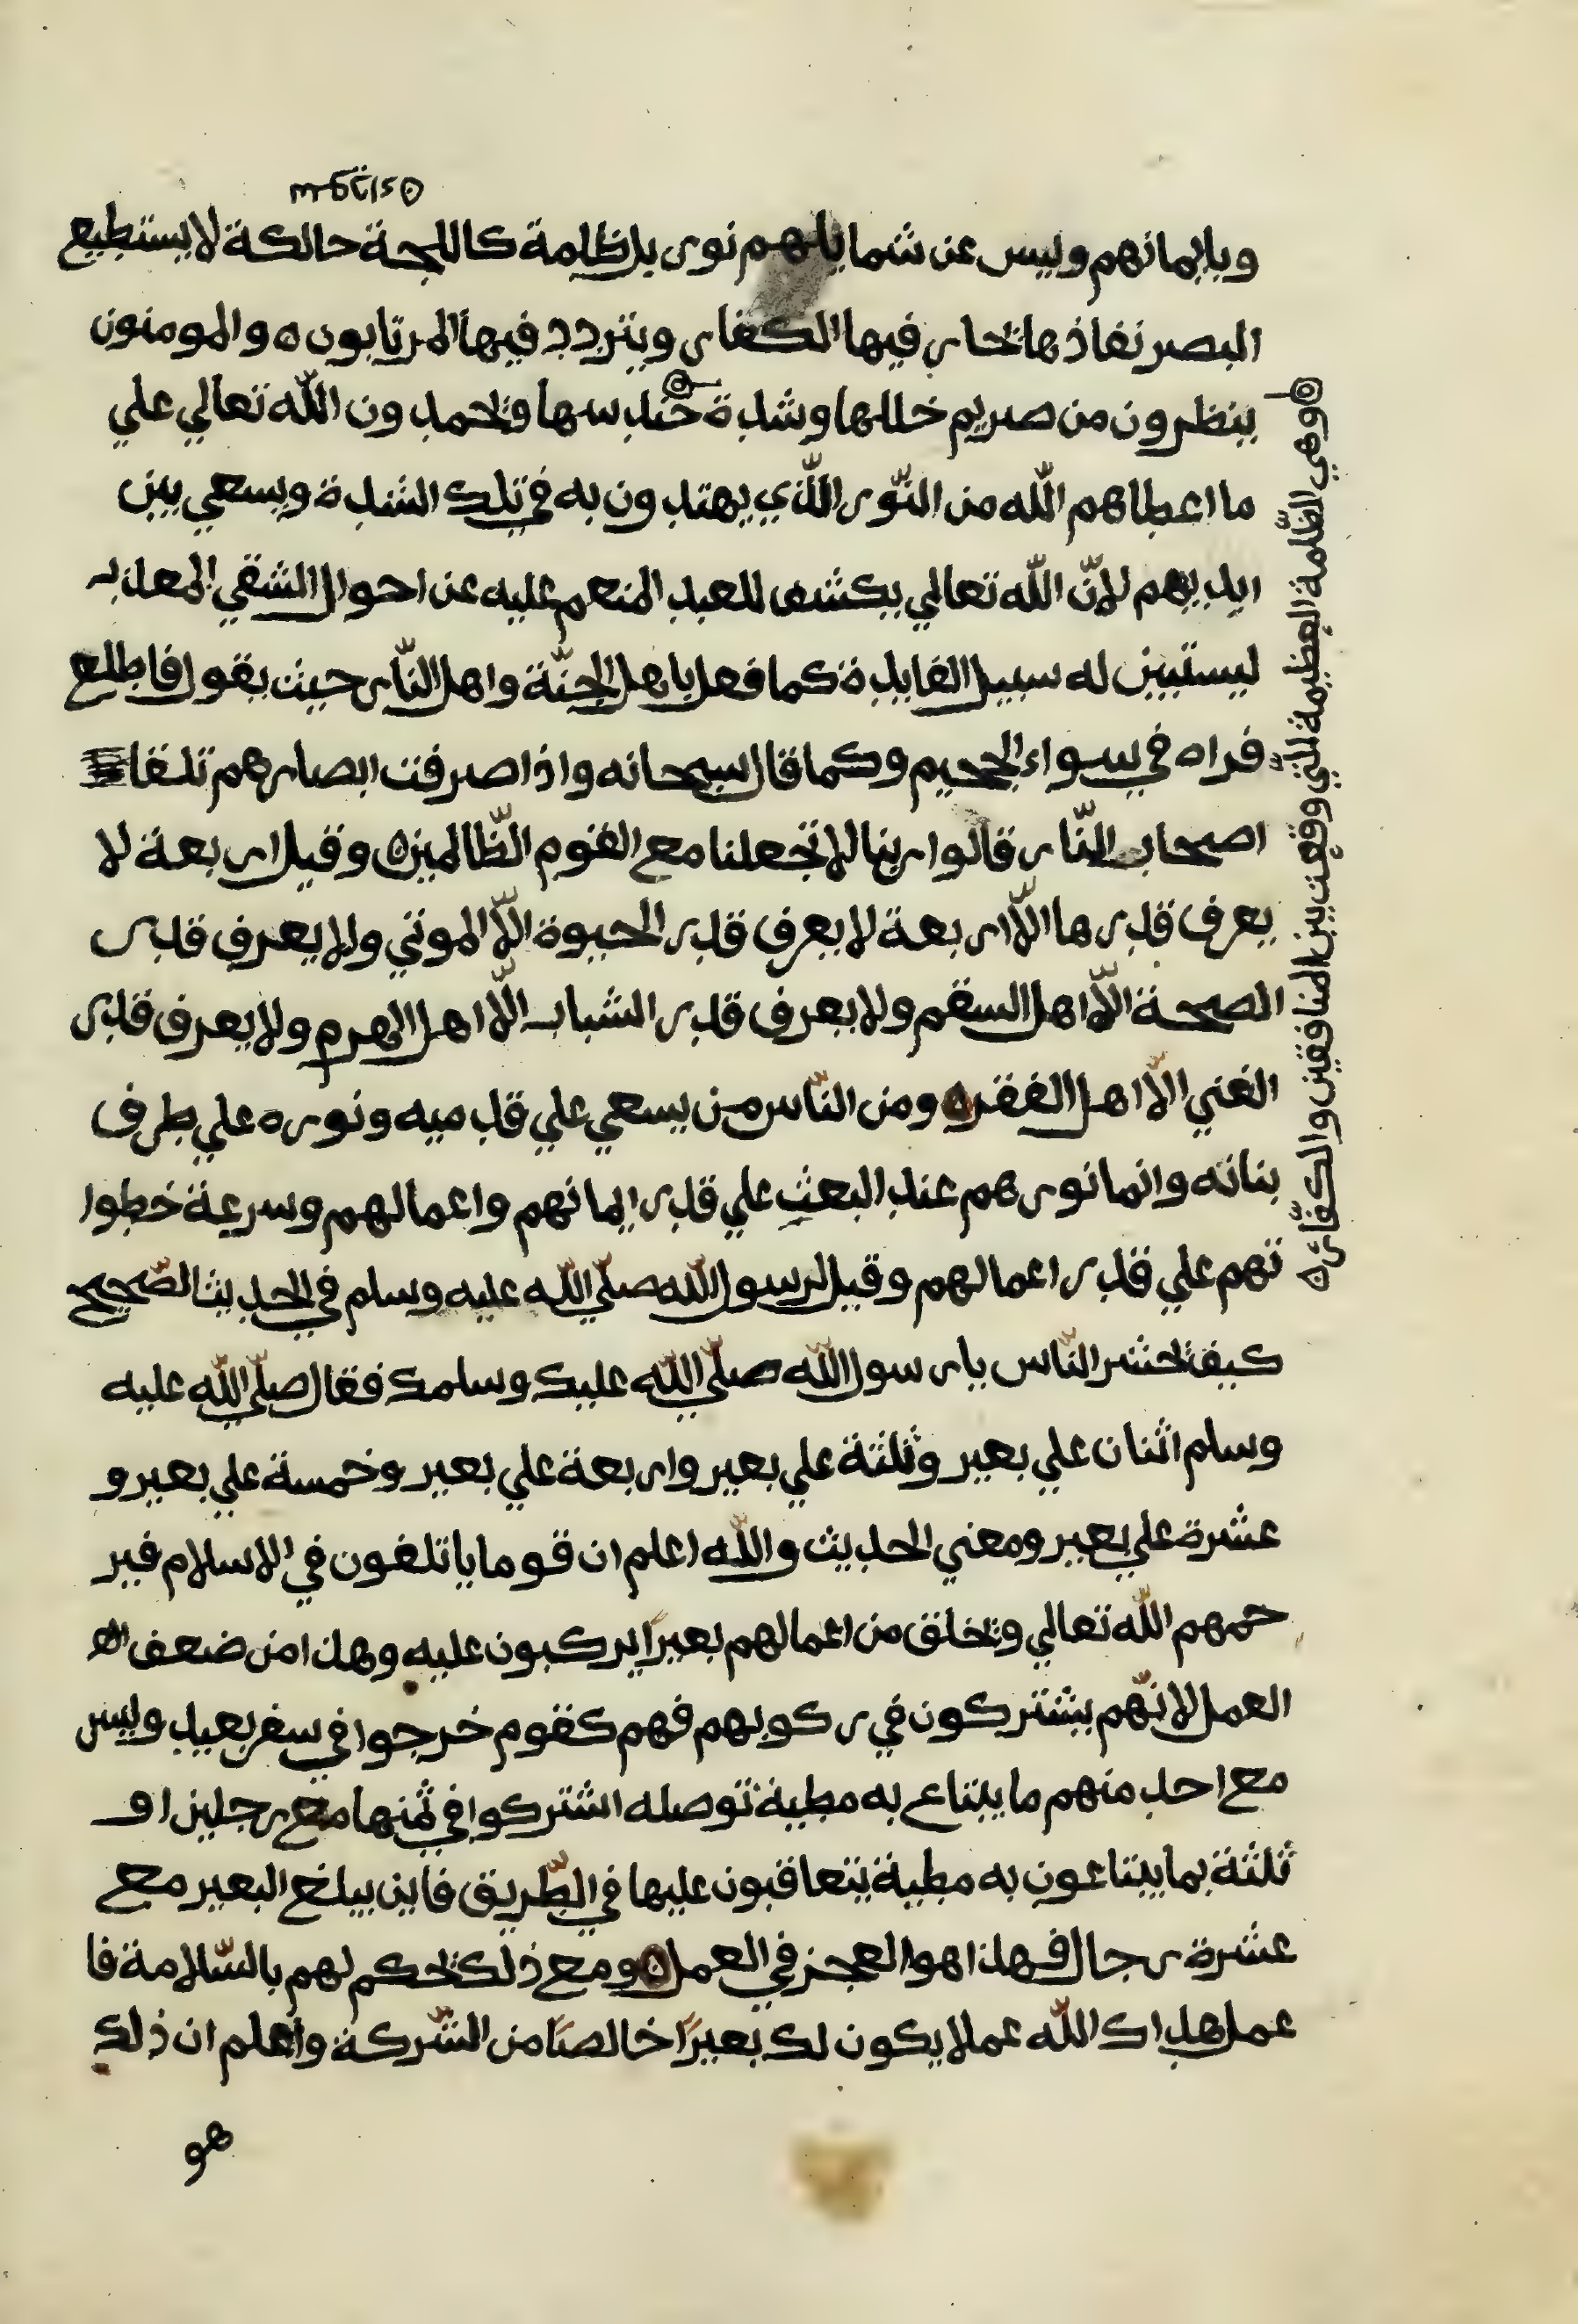 وبايمانهم وليس عن شمايلهم نور بل ظلمة كاللجة حالكة لا يستطيع
البصر نفاذها يحار فيها الكفار ويتردد فيها المرتابون ه والمومنون
ينظرون من صريم خللها وشدة حندسها ويحمدون اللّه تعالي علي
ما اعطاهم اللّه من النّور الّذي يهتدون به في تلك الشدة ويسعي بين
ايديهم لانّ اللّه تعالي يكشف للعبد المنعم عليه عن احوال الشقي المعذب
ليستبين له سبيل الفايدة كما فعل باهل الجنّة واهل النّار حيث يقول فاطلع
فراه في سواء الجحيم وكما قال سبحانه واذا صرفت ابصارهم تلقا
اصحاب النّار قالوا ربنا لا تجعلنا مع القوم الظّالمين ه وقيل اربعة لا
يعرف قدرها الّا اربعة لا يعرف قدر الحيوة الّا الموتي ولا يعرف قدر
الصحة الّا اهل السقم ولا يعرف قدر الشباب الّا اهل الهرم ولا يعرف قدر
الغني الّا اهل الفقر ه ومن النّاس من يسعي علي قدميه ونوره علي طرف
بنانه وانما نورهم عند البعث علي قدر ايمانهم واعمالهم وسرعة خطوا
تهم علي قدر اعمالهم وقيل لرسول اللّه صلّي اللّه عليه وسلم في الحديث الصّحيح
كيف تحشر النّاس يا رسول اللّه صلّي اللّه عليك وسلمك فقال صلّي اللّه عليه
وسلم اثنان علي بعير وثلثة علي بعير واربعة علي بعير وخمسة علي بعير و
عشرة علي بعير ومعني الحديث واللّه اعلم ان قوما ياتلفون في الاسلام فير
حمهم اللّه تعالي ويخلق من اعمالهم بعيرًا يركبون عليه وهذا من ضعف
العمل لانّهم يشتركون في ركوبهم فهم كقوم خرجوا في سفر بعيد وليس
مع احد منهم ما يبتاع به مطية توصله اشتركوا في ثمنها مع رجلين او
ثلثة بما يبتاعون به مطية يتعاقبون عليها في الطّريق فاين يبلغ البعير مع
عشرة رجال فهذا هو العجز في العمل ه ومع ذلك يحكم لهم بالسّلامة فا
عمل هداك اللّه عملا يكون لك بعيرًا خالصًا من الشّركة واعلم ان ذلك
هو
وهي الظّلمة العظيمة التي وقعت بين المنافقين والكفّار ه